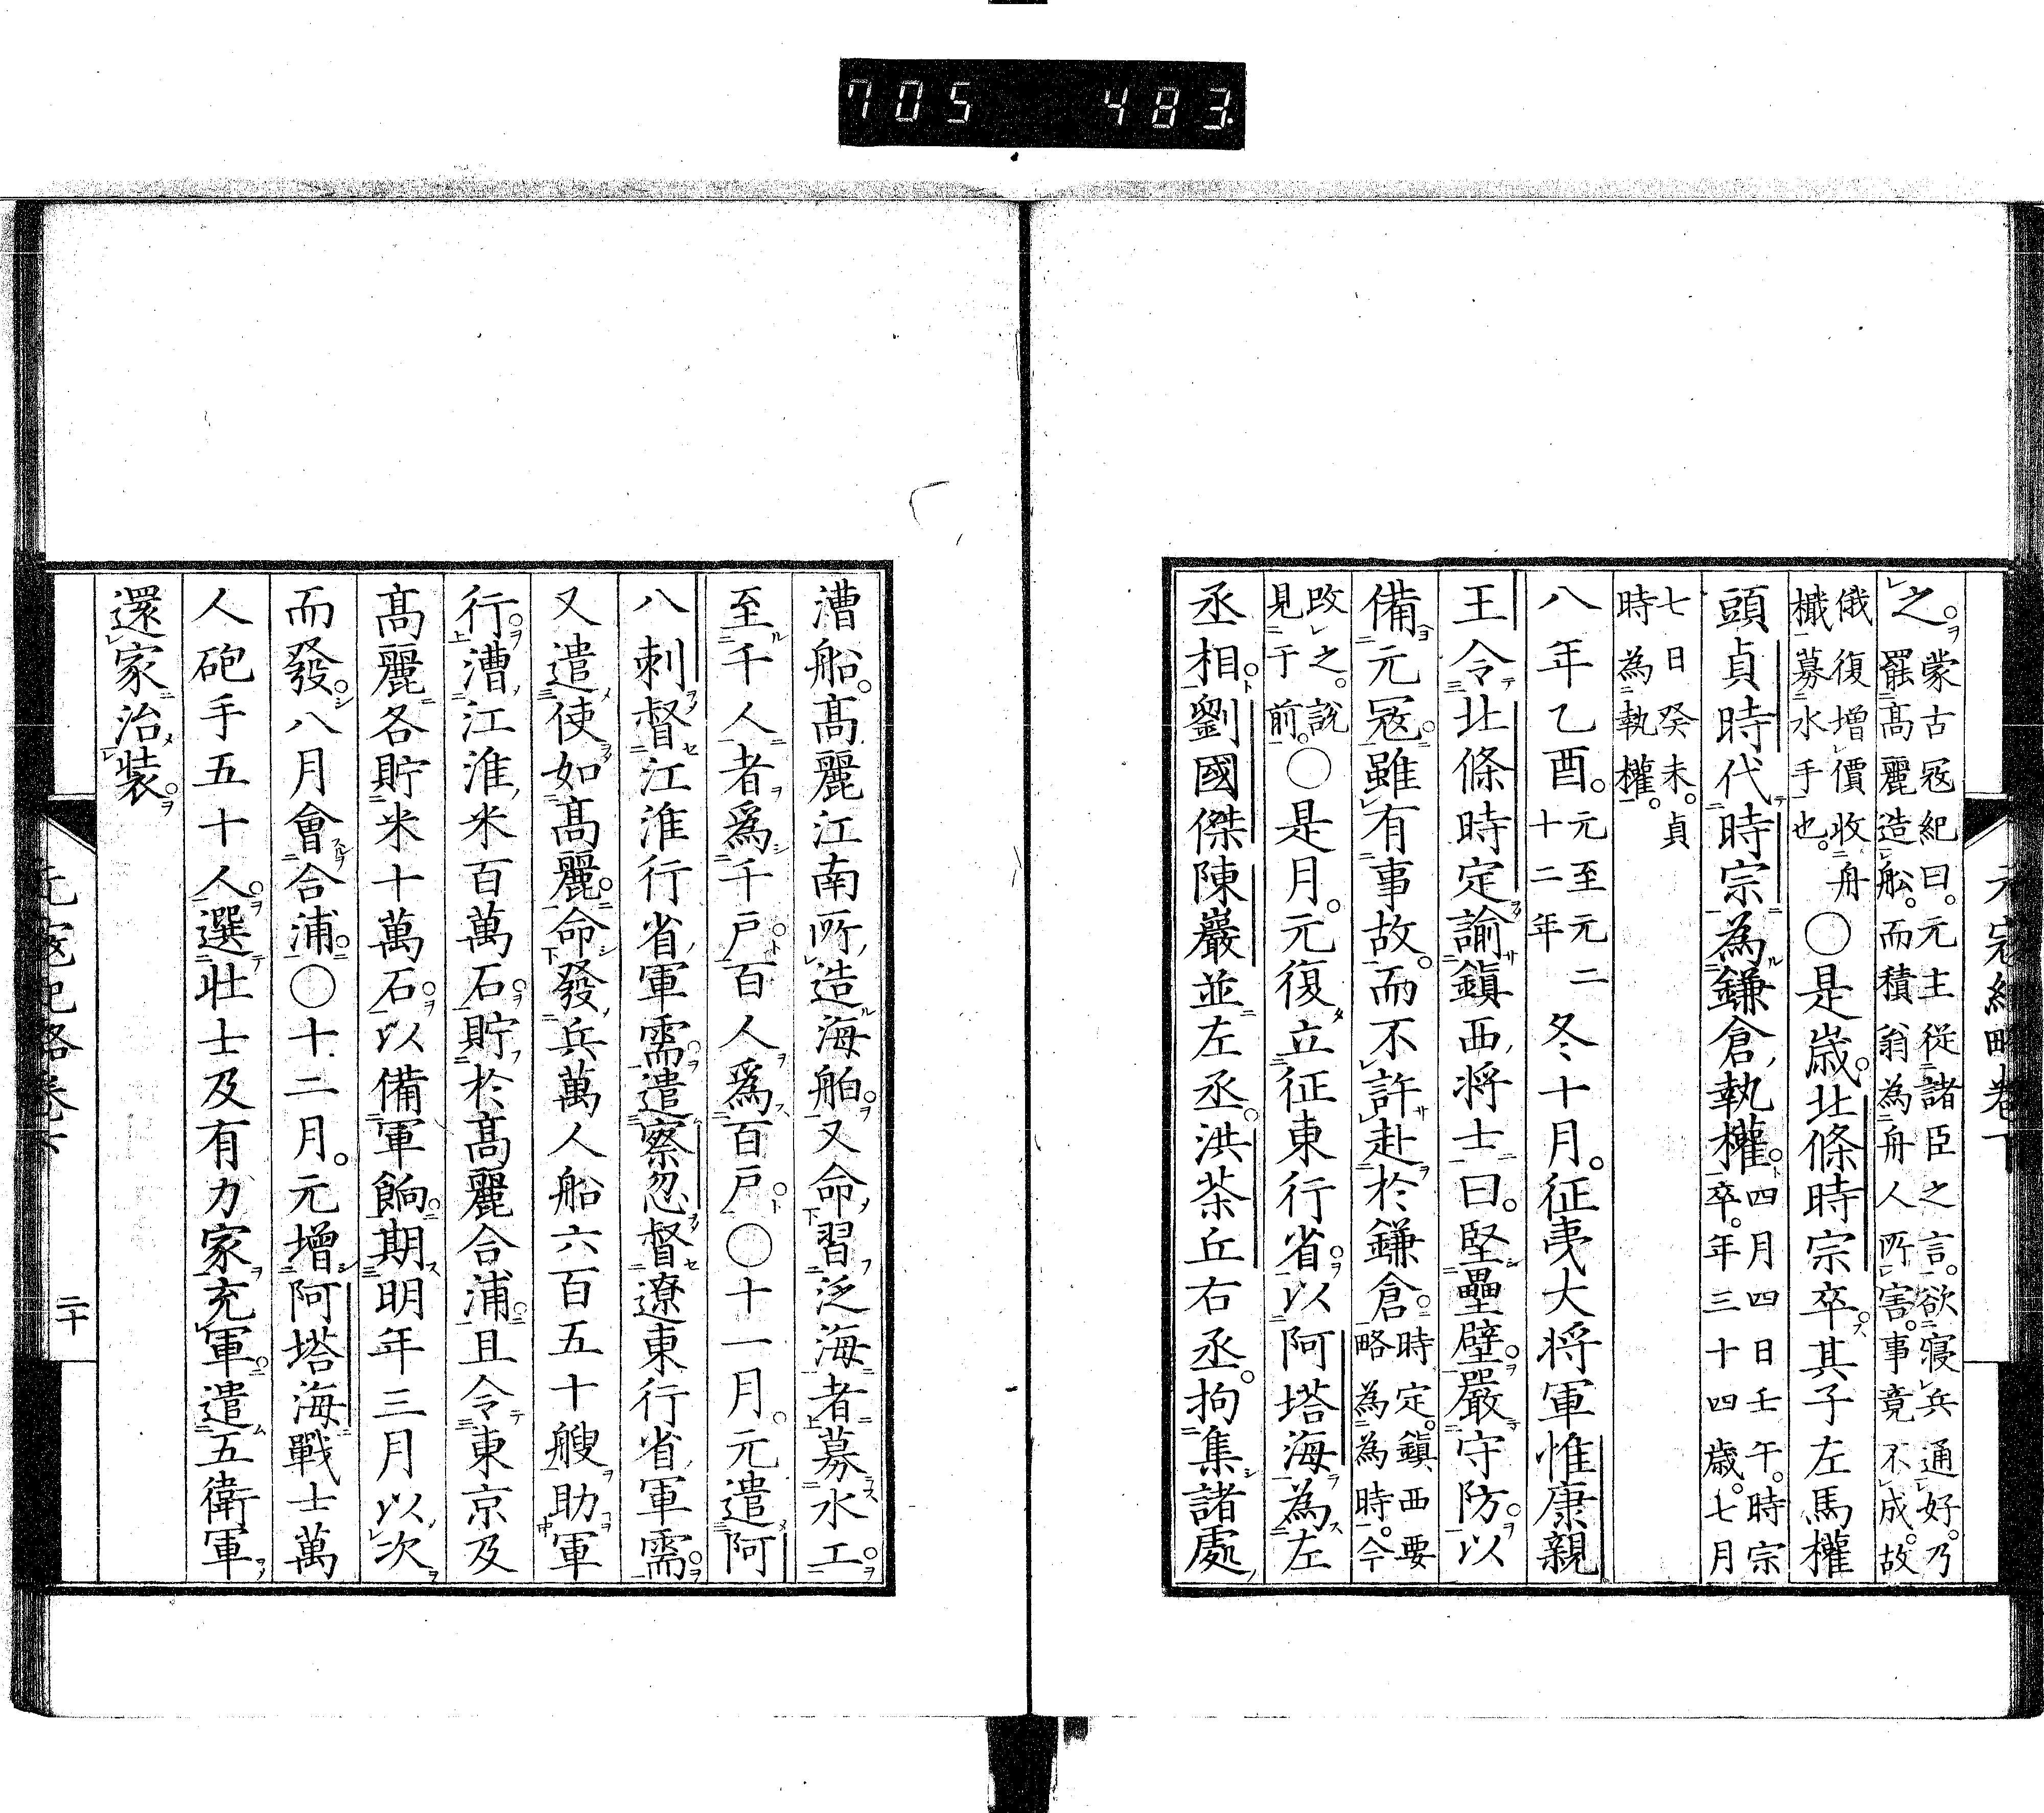 705 483
元寇紀略卷下
之。蒙古寇紀曰。元主從諸臣之言。欲寢兵通好。乃
罷高麗造船。而積翁為舟人所害。事竟不成。故
俄復增價收舟
檥募水手也。〇是歲。北條時宗卒。其子左馬權
頭貞時代時宗為鎌倉執權。四月四日壬午。時宗
卒。年三十四歲。七月
七日癸未。貞
時為執權。
八年乙酉。元至元二
十二年冬十月。征夷大將軍惟康親
王令北條時定諭鎮西將士曰。堅壘壁。嚴守防。以
備元寇。雖有事故。而不許赴於鎌倉。時定。鎮西要
略為為時。今
改之。說
見于前。〇是月。元復立征東行省。以阿塔海為左
丞相。劉國傑陳巖並左丞。洪茶丘右丞。拘集諸處
漕船。高麗江南所造海舶。又命習泛海者募水工
至千人者爲千戶。百人爲百戶。〇十一月。元遣阿
八剌督江淮行省軍需。遣察忽督遼東行省軍需。
又遣使如高麗。命發兵萬人船六百五十艘助軍
行。漕江淮米百萬石。貯於高麗合浦。且令東京及
高麗各貯米十萬石。以備軍餉。期明年三月以次
而發。八月會合浦。〇十二月。元增阿塔海戰士萬
人砲手五十人。選壯士及有力家充軍。遣五衛軍
還家治裝。
元寇紀略卷下
二十